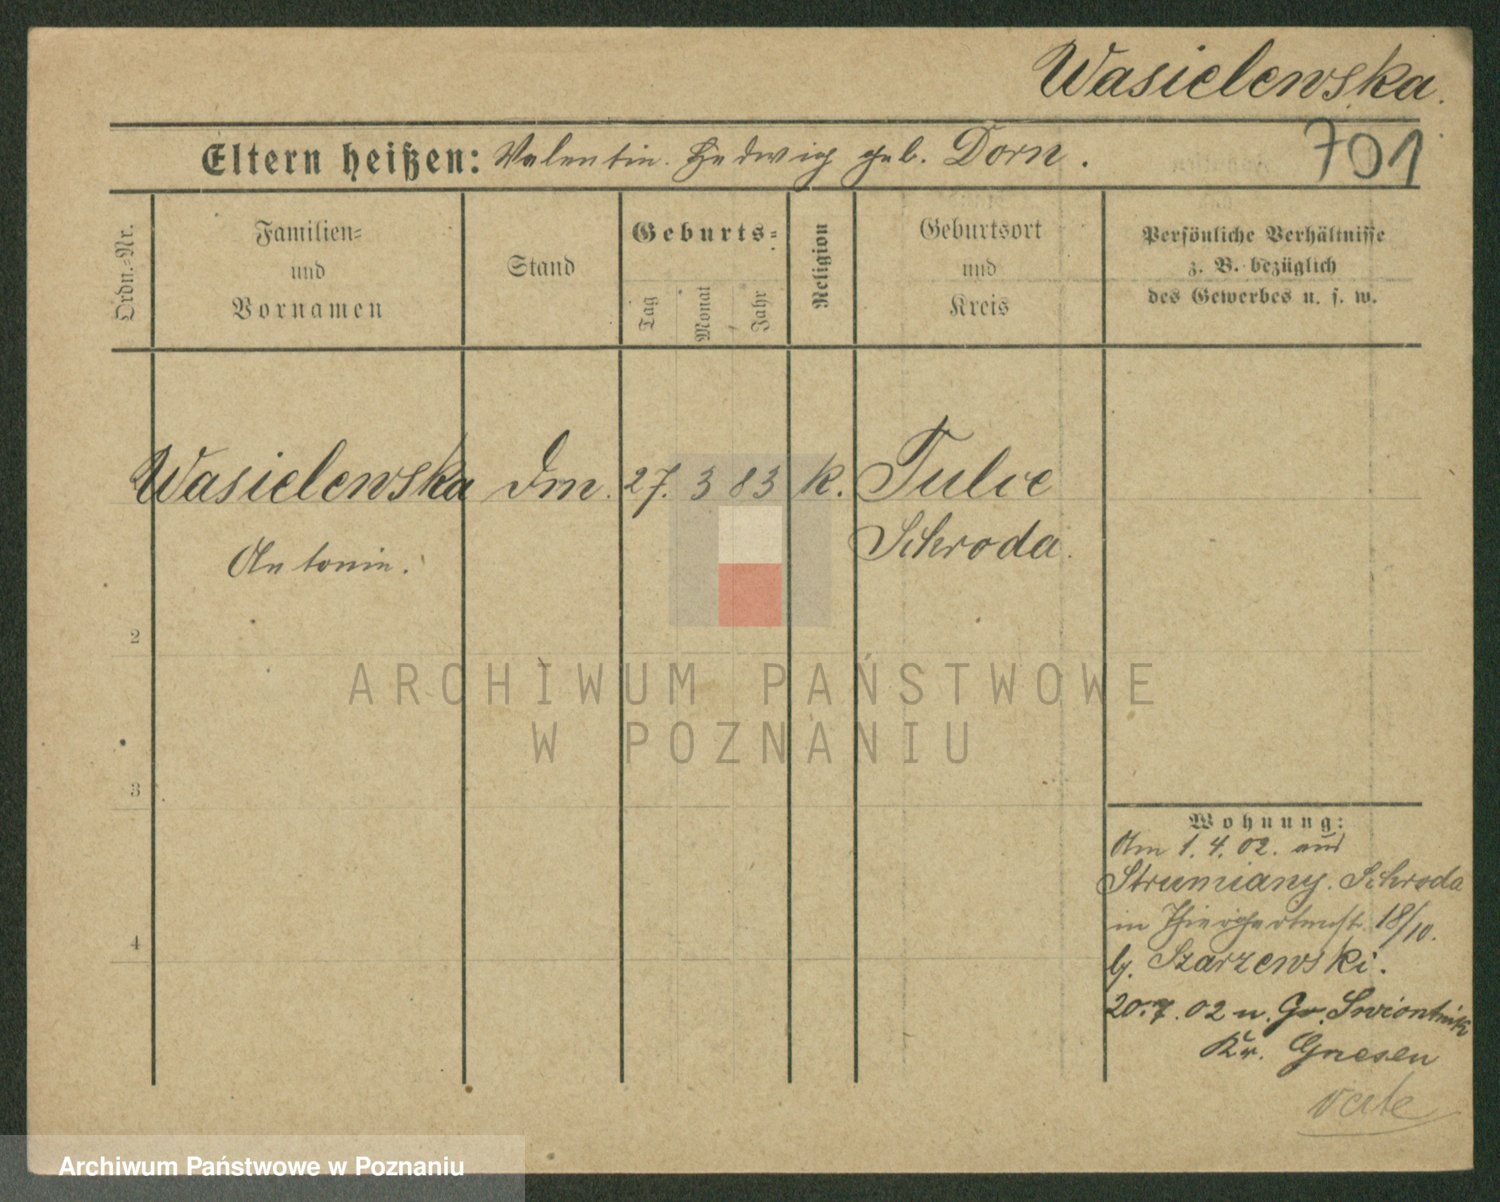 Wasielewska.
Eltern heißen: Valentin. Hedwig geb. Dorn.
701
Ordn.-Nr.
Familien-
und
Vornamen
Stand
Geburts-
Tag
Monat
Jahr
Religion
Geburtsort
und
Kreis
Persönliche Verhältnisse
z. B. bezüglich
des Gewerbes u. s. w.
Wasielewska Dm. 27. 3 83 K. Tulce
Antonin. Schroda.
2
3
4
Wohnung:
Am 1. 4. 02. aus
Strumiany. Schroda
in 18/10.
b. Szarzewski.
20.7. 02 n. Gr. Swiontnik
Kr. Gnesen
ARCHIWUM PAŃSTWOWE
W POZNANIU
Archiwum Państwowe w Poznaniu